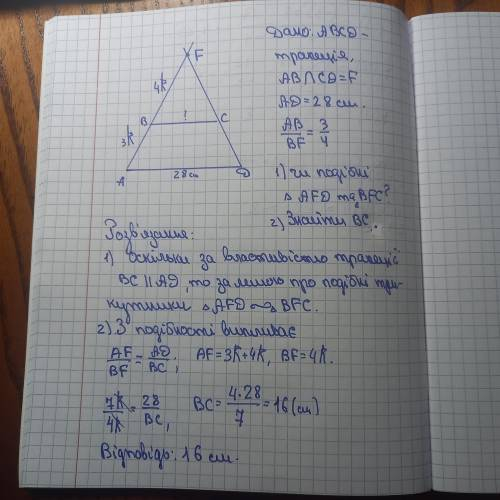 Дано: ABCD-
трапеція,
AB∩CD=F
AD=28 см.
AB/BF = 3/4
1) чи подібні
△ AFD та △ BFC?
2) Знайти BC.
F
4k
B
?
C
3k
A
28 см
D
Розв'язання:
1) Оскільки за властивістю трапеції
BC || AD, то за лемою про подібні три-
кутники △ AFD ∾ △ BFC.
2) З подібності випливає
AF/BF = AD/BC; AF=3k+4k, BF=4k.
7k/4k = 28/BC, BC = 4·28/7 = 16 (см)
Відповідь: 16 см.